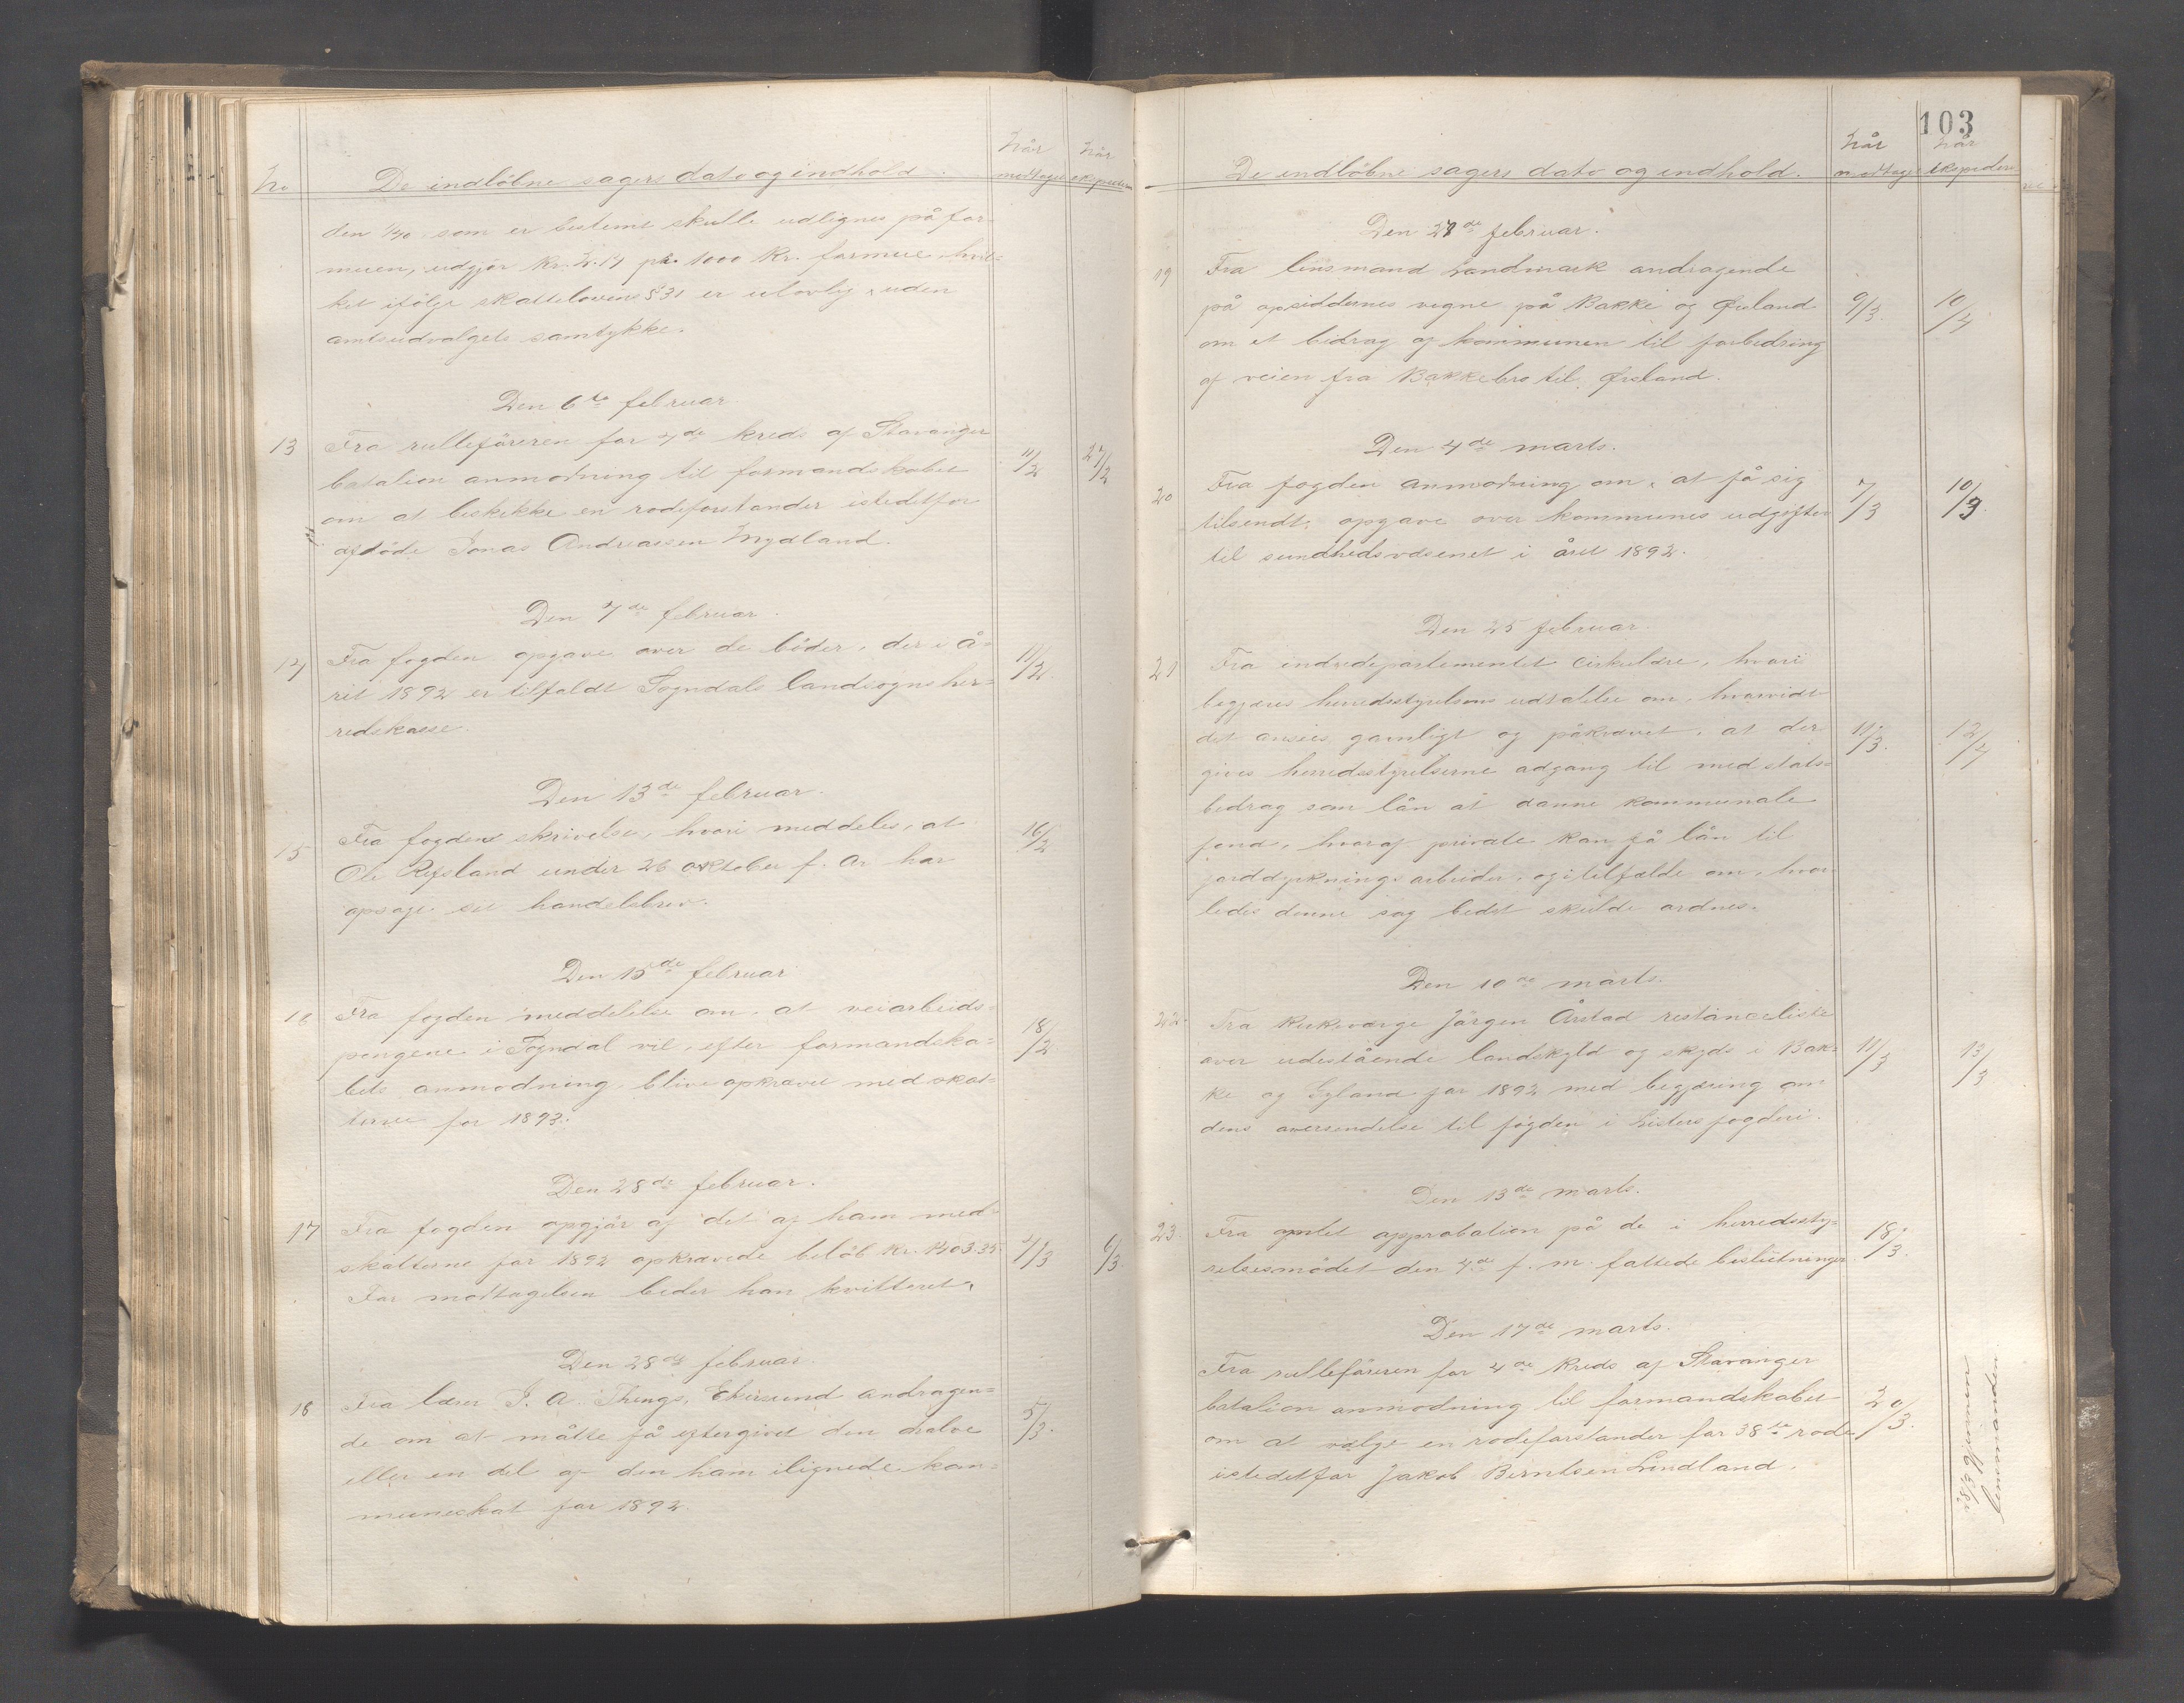 No
De indløbne sagers dato og indhold.
Når modtaget
Når ekspederet
den 1/40 som er bestemt skulle udlignes på for-
muen, udgjør Kr. 2.14 pr. 1000 Kr. formue, hvil-
ket ifølge skattelovens § 31 er ulovlig, uden
amtsudvalgets samtykke.
Den 6te februar.
13 Fra rulleføreren for 4de kreds af Stavanger 11/2 27/2
batalion anmodning til formandskabet
om at beskikke en rodeforstander istedetfor
afdøde Jonas Andreassen Mydland.
Den 7de februar.
14 Fra fogden opgave over de bøder, der i å- 11/2
ret 1892 er tilfaldt Sogndals landsogns her-
redskasse.
Den 13de februar.
15 Fra fogden skrivelse, hvori meddeles, at 16/2
Ole Refsland under 26 oktober f. Ar har
opsagt sit handelsbrev.
Den 15de februar
16 Fra fogden meddelelse om, at veiarbeids-
pengene i Sogndal vil, efter formandska- 18/2
bets anmodning, blive opkrævet med skat-
terne for 1893.
Den 28de februar.
17 Fra fogden opgjør af det af ham med-
skatterne for 1892 opkrævede beløb Kr. 1403.35. 2/3 6/3
For modtagelsen beder han kvitteret.
Den 28de februar.
18 Fra lærer J. A. Thengs, Ekersund andragen- 5/3
de om at måtte få eftergivet den halve
eller en del af den ham ilignede kom-
muneskat for 1892.
103
De indløbne sagers dato og indhold.
Når modtaget
Når ekspederet
Den 27de februar.
19 Fra lensmand Landmark andragende
på opsiddernes vegne på Bakke og Øisland 9/3 10/4
om et bidrag af kommunen til forbedring
af veien fra Bakkebro til Øisland.
Den 4de marts.
20 Fra fogden anmodning om, at få sig 7/3 10/3
tilsendt opgave over kommunes udgifter
til sundhedsvæsenet i året 1892.
Den 25 februar.
21 Fra indredepartementet cirkulære, hvori
begjæres herredsstyrelsens udtalelse om, hvorvidt
det ansees gavnligt og påkrævet, at der 11/3 12/4
gives herredsstyrelserne adgang til med stats-
bidrag som lån at danne kommunale
fond, hvoraf private kan få lån til
jorddyrknings arbeider, og i tilfælde om, hvor-
ledes denne sag bedst skulde ordnes.
Den 10de marts.
22 Fra kirkeværge Jørgen Årstad restanceliste
over udestående landskyld og skyds i Bak- 11/3 13/3
ke og Gyland for 1892 med begjæring om
dens oversendelse til fogden i Listers fogderi.
Den 13de marts.
23 Fra amtet approbation på de i herredssty- 18/3
relsesmødet den 4de f. m. fattede beslutninger
Den 17de marts.
Fra rulleføreren for 4de Kreds af Stavanger
batalion anmodning til formandskabet 20/3
om at vælge en rodeforstander for 38te rode
istedetfor Jakob Berntsen Lindland.
28/3 gjennem
lensmanden